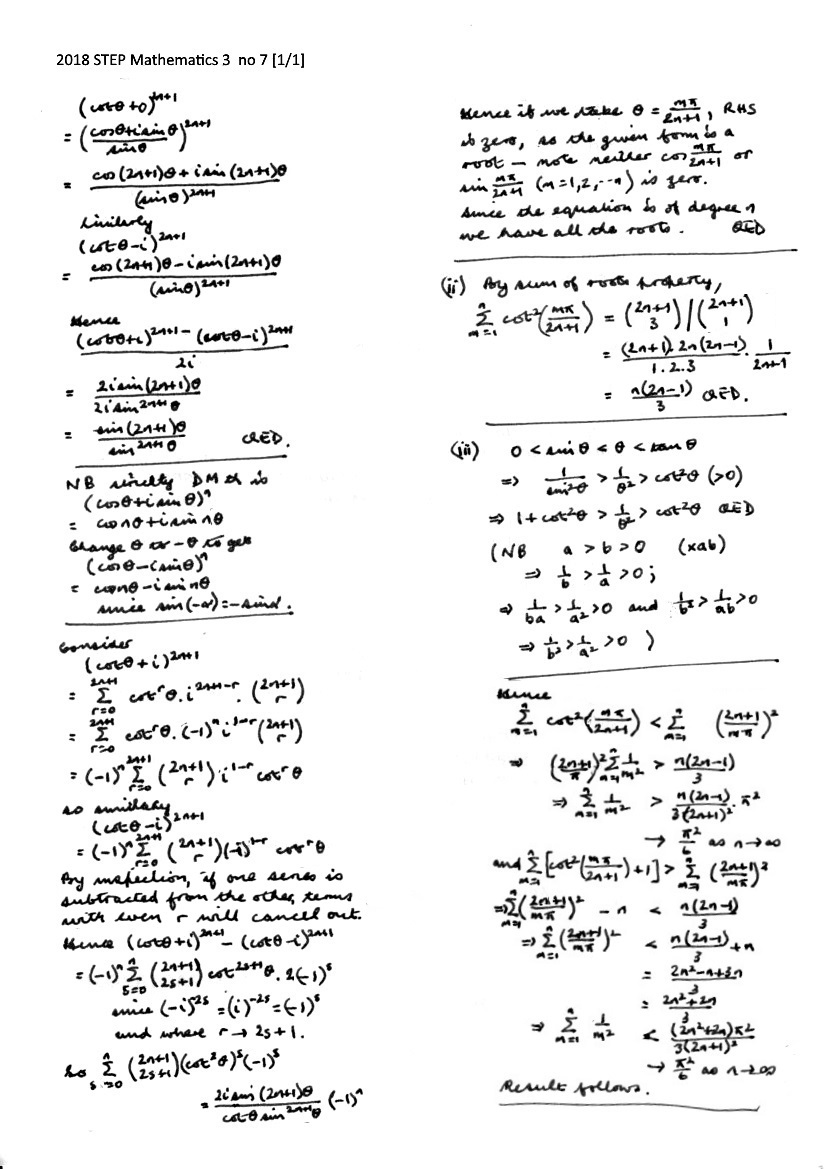 2018 STEP Mathematics 3 no 7 [1/1]
(cotθ + i)^{2n+1}
= ((cosθ + i sinθ)/sinθ)^{2n+1}
= (cos(2n+1)θ + i sin(2n+1)θ)/(sinθ)^{2n+1}
Similarly
(cotθ - i)^{2n+1}
= (cos(2n+1)θ - i sin(2n+1)θ)/(sinθ)^{2n+1}
Hence
((cotθ+i)^{2n+1} - (cotθ-i)^{2n+1})/2i
= 2i sin(2n+1)θ / 2i sin^{2n+1}θ
= sin(2n+1)θ / sin^{2n+1}θ QED.
NB strictly DM th is
(cosθ + i sinθ)^n
= cos nθ + i sin nθ
Change θ to -θ to get
(cosθ - i sinθ)^n
= cos nθ - i sin nθ
since sin(-α) = -sinα.
Consider
(cotθ + i)^{2n+1}
= Σ_{r=0}^{2n+1} cot^rθ . i^{2n+1-r} . (2n+1 r)
= Σ_{r=0}^{2n+1} cot^rθ . (-1)^n i^{1-r} (2n+1 r)
= (-1)^n Σ_{r=0}^{2n+1} (2n+1 r) i^{1-r} cot^rθ
so similarly
(cotθ - i)^{2n+1}
= (-1)^n Σ_{r=0}^{2n+1} (2n+1 r) (-i)^{1-r} cot^rθ
By inspection, if one series is
subtracted from the other, terms
with even r will cancel out.
Hence (cotθ+i)^{2n+1} - (cotθ-i)^{2n+1}
= (-1)^n Σ_{s=0}^{n} (2n+1 2s+1) cot^{2s+1}θ . 2(-1)^s
since (-i)^{2s} = (i)^{-2s} = (-1)^s
and where r → 2s+1.
So Σ_{s=0}^{n} (2n+1 2s+1) (cot²θ)^s (-1)^s
= (2i sin(2n+1)θ / cotθ sin^{2n+1}θ) (-1)^n
Hence if we take θ = mπ/(2n+1), RHS
is zero, so the given form is a
root – note neither cos mπ/(2n+1) or
sin mπ/(2n+1) (m=1,2,--n) is zero.
Since the equation is of degree n
we have all the roots. QED
(ii) By sum of roots property,
Σ_{m=1}^{n} cot²(mπ/(2n+1)) = (2n+1 3)/(2n+1 1)
= ((2n+1).2n(2n-1)/1.2.3) . 1/(2n+1)
= n(2n-1)/3 QED.
(iii) 0 < sinθ < θ < tanθ
⇒ 1/sin²θ > 1/θ² > cot²θ (>0)
⇒ 1 + cot²θ > 1/θ² > cot²θ QED
(NB a > b > 0 (×ab)
⇒ 1/b > 1/a > 0;
⇒ 1/ba > 1/a² > 0 and 1/b² > 1/ab > 0
⇒ 1/b² > 1/a² > 0 )
Hence
Σ_{m=1}^{n} cot²(mπ/(2n+1)) < Σ_{m=1}^{n} ((2n+1)/mπ)²
⇒ ((2n+1)/π)² Σ_{m=1}^{n} 1/m² > n(2n-1)/3
⇒ Σ_{m=1}^{n} 1/m² > (n(2n-1)/3(2n+1)²) . π²
→ π²/6 as n→∞
and Σ_{m=1}^{n} [cot²(mπ/(2n+1)) + 1] > Σ_{m=1}^{n} ((2n+1)/mπ)²
⇒ Σ_{m=1}^{n} ((2n+1)/mπ)² - n < n(2n-1)/3
⇒ Σ_{m=1}^{n} ((2n+1)/mπ)² < n(2n-1)/3 + n
= (2n²-n+3n)/3
= (2n²+2n)/3
⇒ Σ_{m=1}^{n} 1/m² < (2n²+2n)π²/3(2n+1)²
→ π²/6 as n→∞
Result follows.